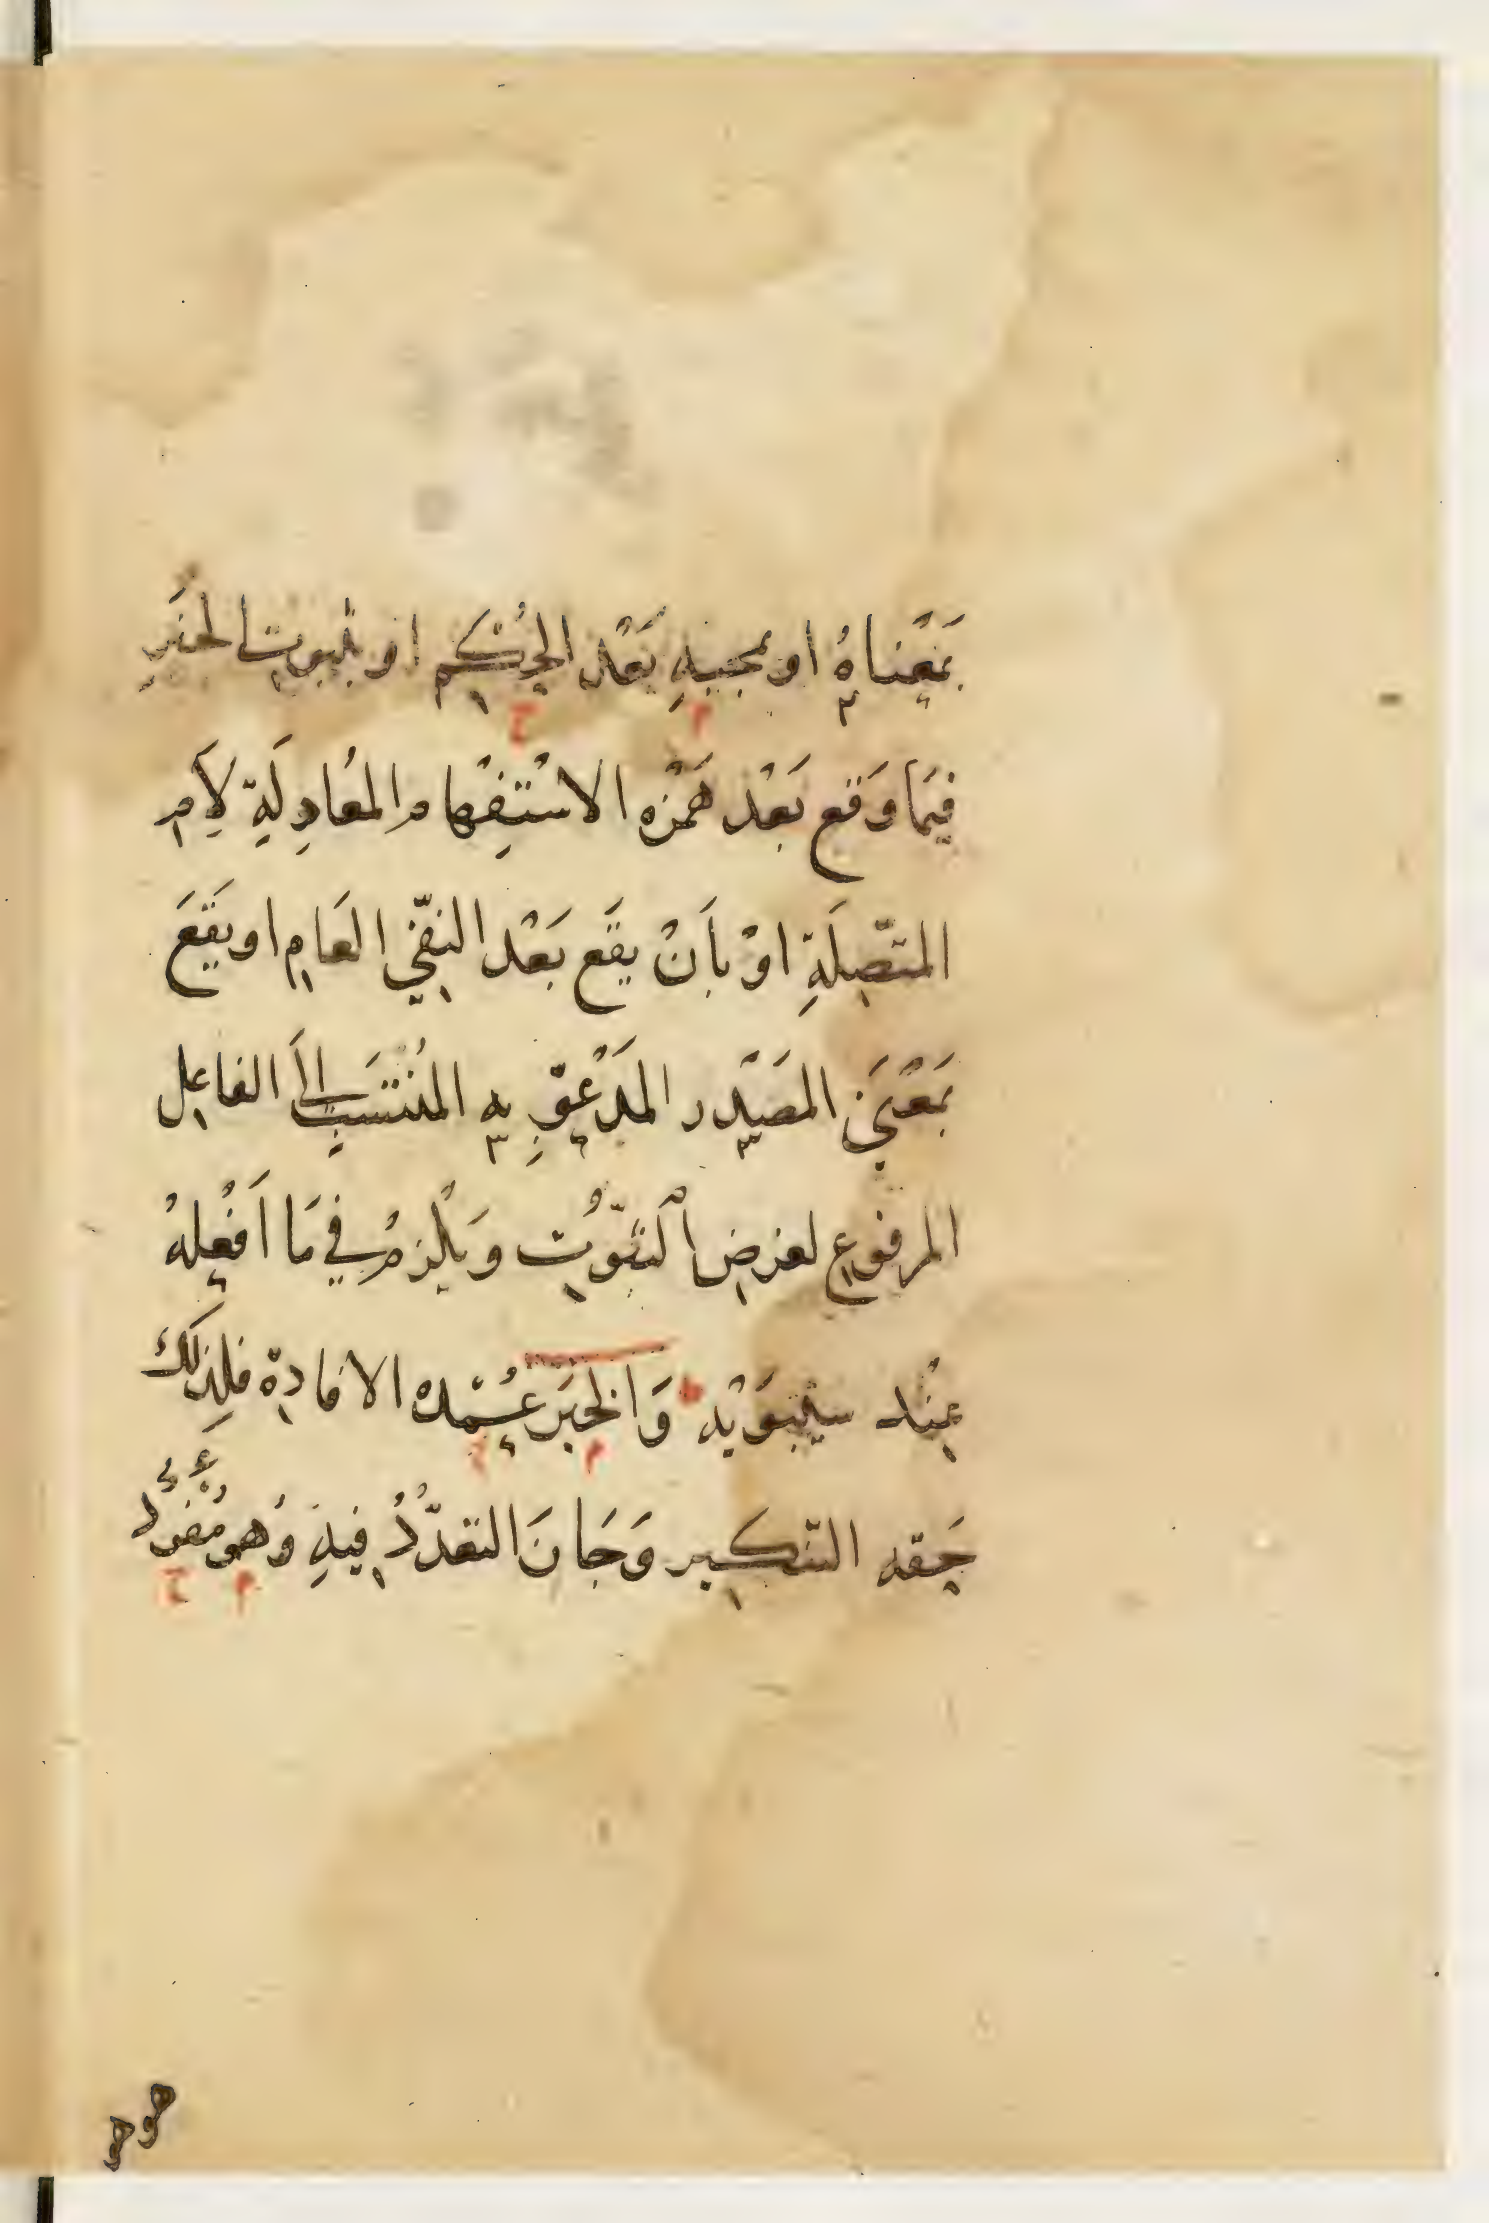 بمَعْناهُ او بمجيئهِ بَعْد الحُكْم او بثبوت الخبَرِ
فيمَا وَقع بَعْد هَمْزه الاسْتِفْهام المُعادِلَةِ لِأَم
المتّصِلَةِ اوْ بأَنْ يقَع بَعْد النّفي العَام او يَقَعَ
بمَعْنَى المصَدْر المَدْعوِّ بِهِ المُنْتَسَب الىَ الفاعِل
المرفوع لغرض الثبُوّت وَيلْزمُ في مَا أَفْعلهُ
عِنْد سيْبوَيْه وَالخبَر عُمْده الافادة فلِذلك
حَقه التنكير وَجَازَ التعدّدُ فيهِ وَهو مُفْرَدٌ
هو هو